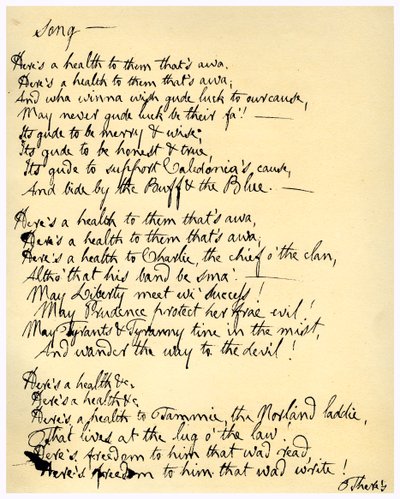 Song —
Here's a health to them that's awa,
Here's a health to them that's awa;
And wha winna wish gude luck to our cause,
May never gude luck be their fa'! —
Its gude to be merry & wise;
Its gude to be honest & true,
Its gude to support Caledonia's cause,
And bide by the Buff & the Blue. —
Here's a health to them that's awa,
Here's a health to them that's awa;
Here's a health to Charlie, the chief o' the clan,
Altho' that his band be sma'. —
May Liberty meet wi' success!
May Prudence protect her frae evil!
May Tyrants & Tyranny tine in the mist,
And wander the way to the devil!
Here's a health &c.
Here's a health &c
Here's a health to Tammie, the Norland laddie,
That lives at the lug o' the law!
Here's freedom to him that wad read,
Here's freedom to him that wad write!